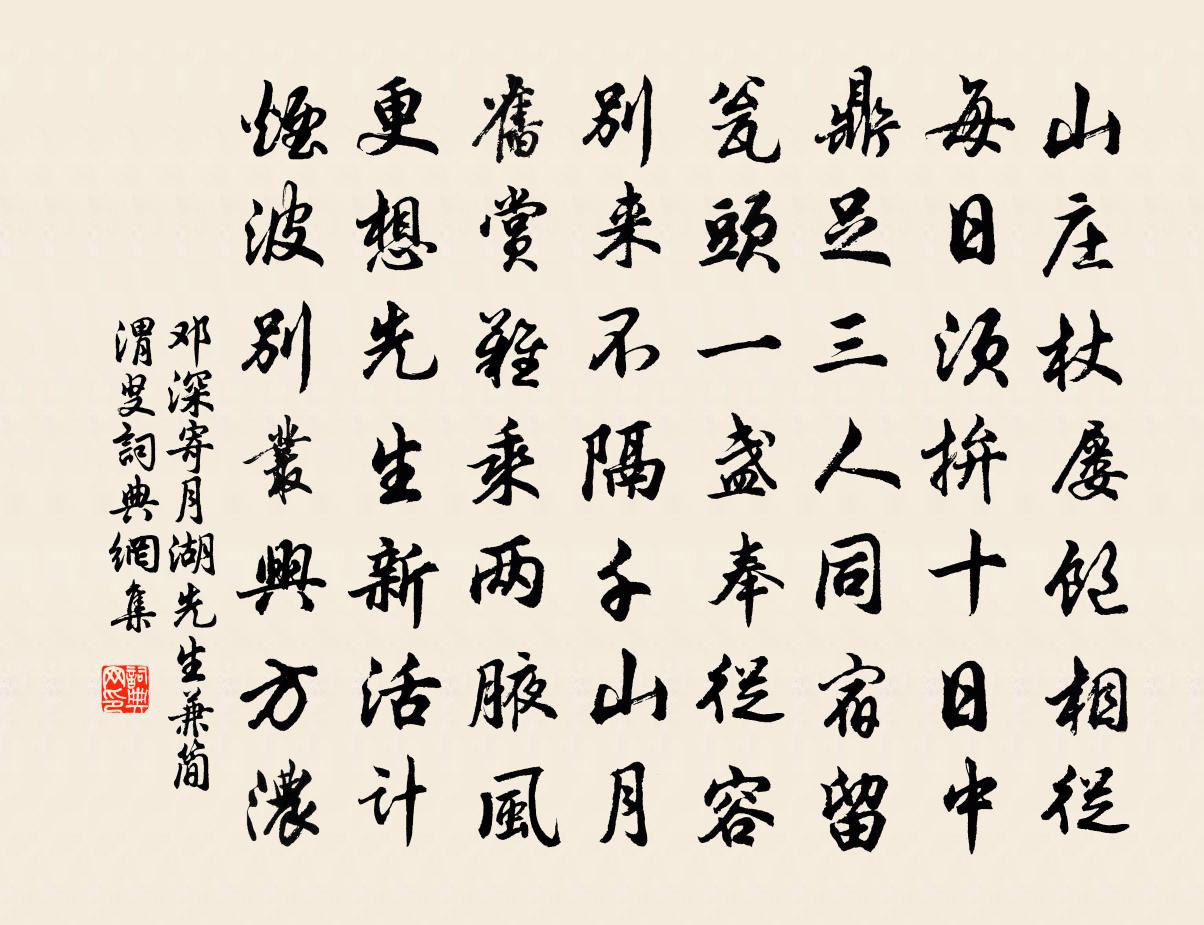 山庄杖屡饱相從
每日须拚十日中
鼎足三人同宿留
瓮頭一盏奉從容
别来不隔千山月
舊赏難乘两腋風
更想先生新活计
煙波别叢興方濃
邓深寄月湖先生兼简
渭叟詞典網集
詞典
网印